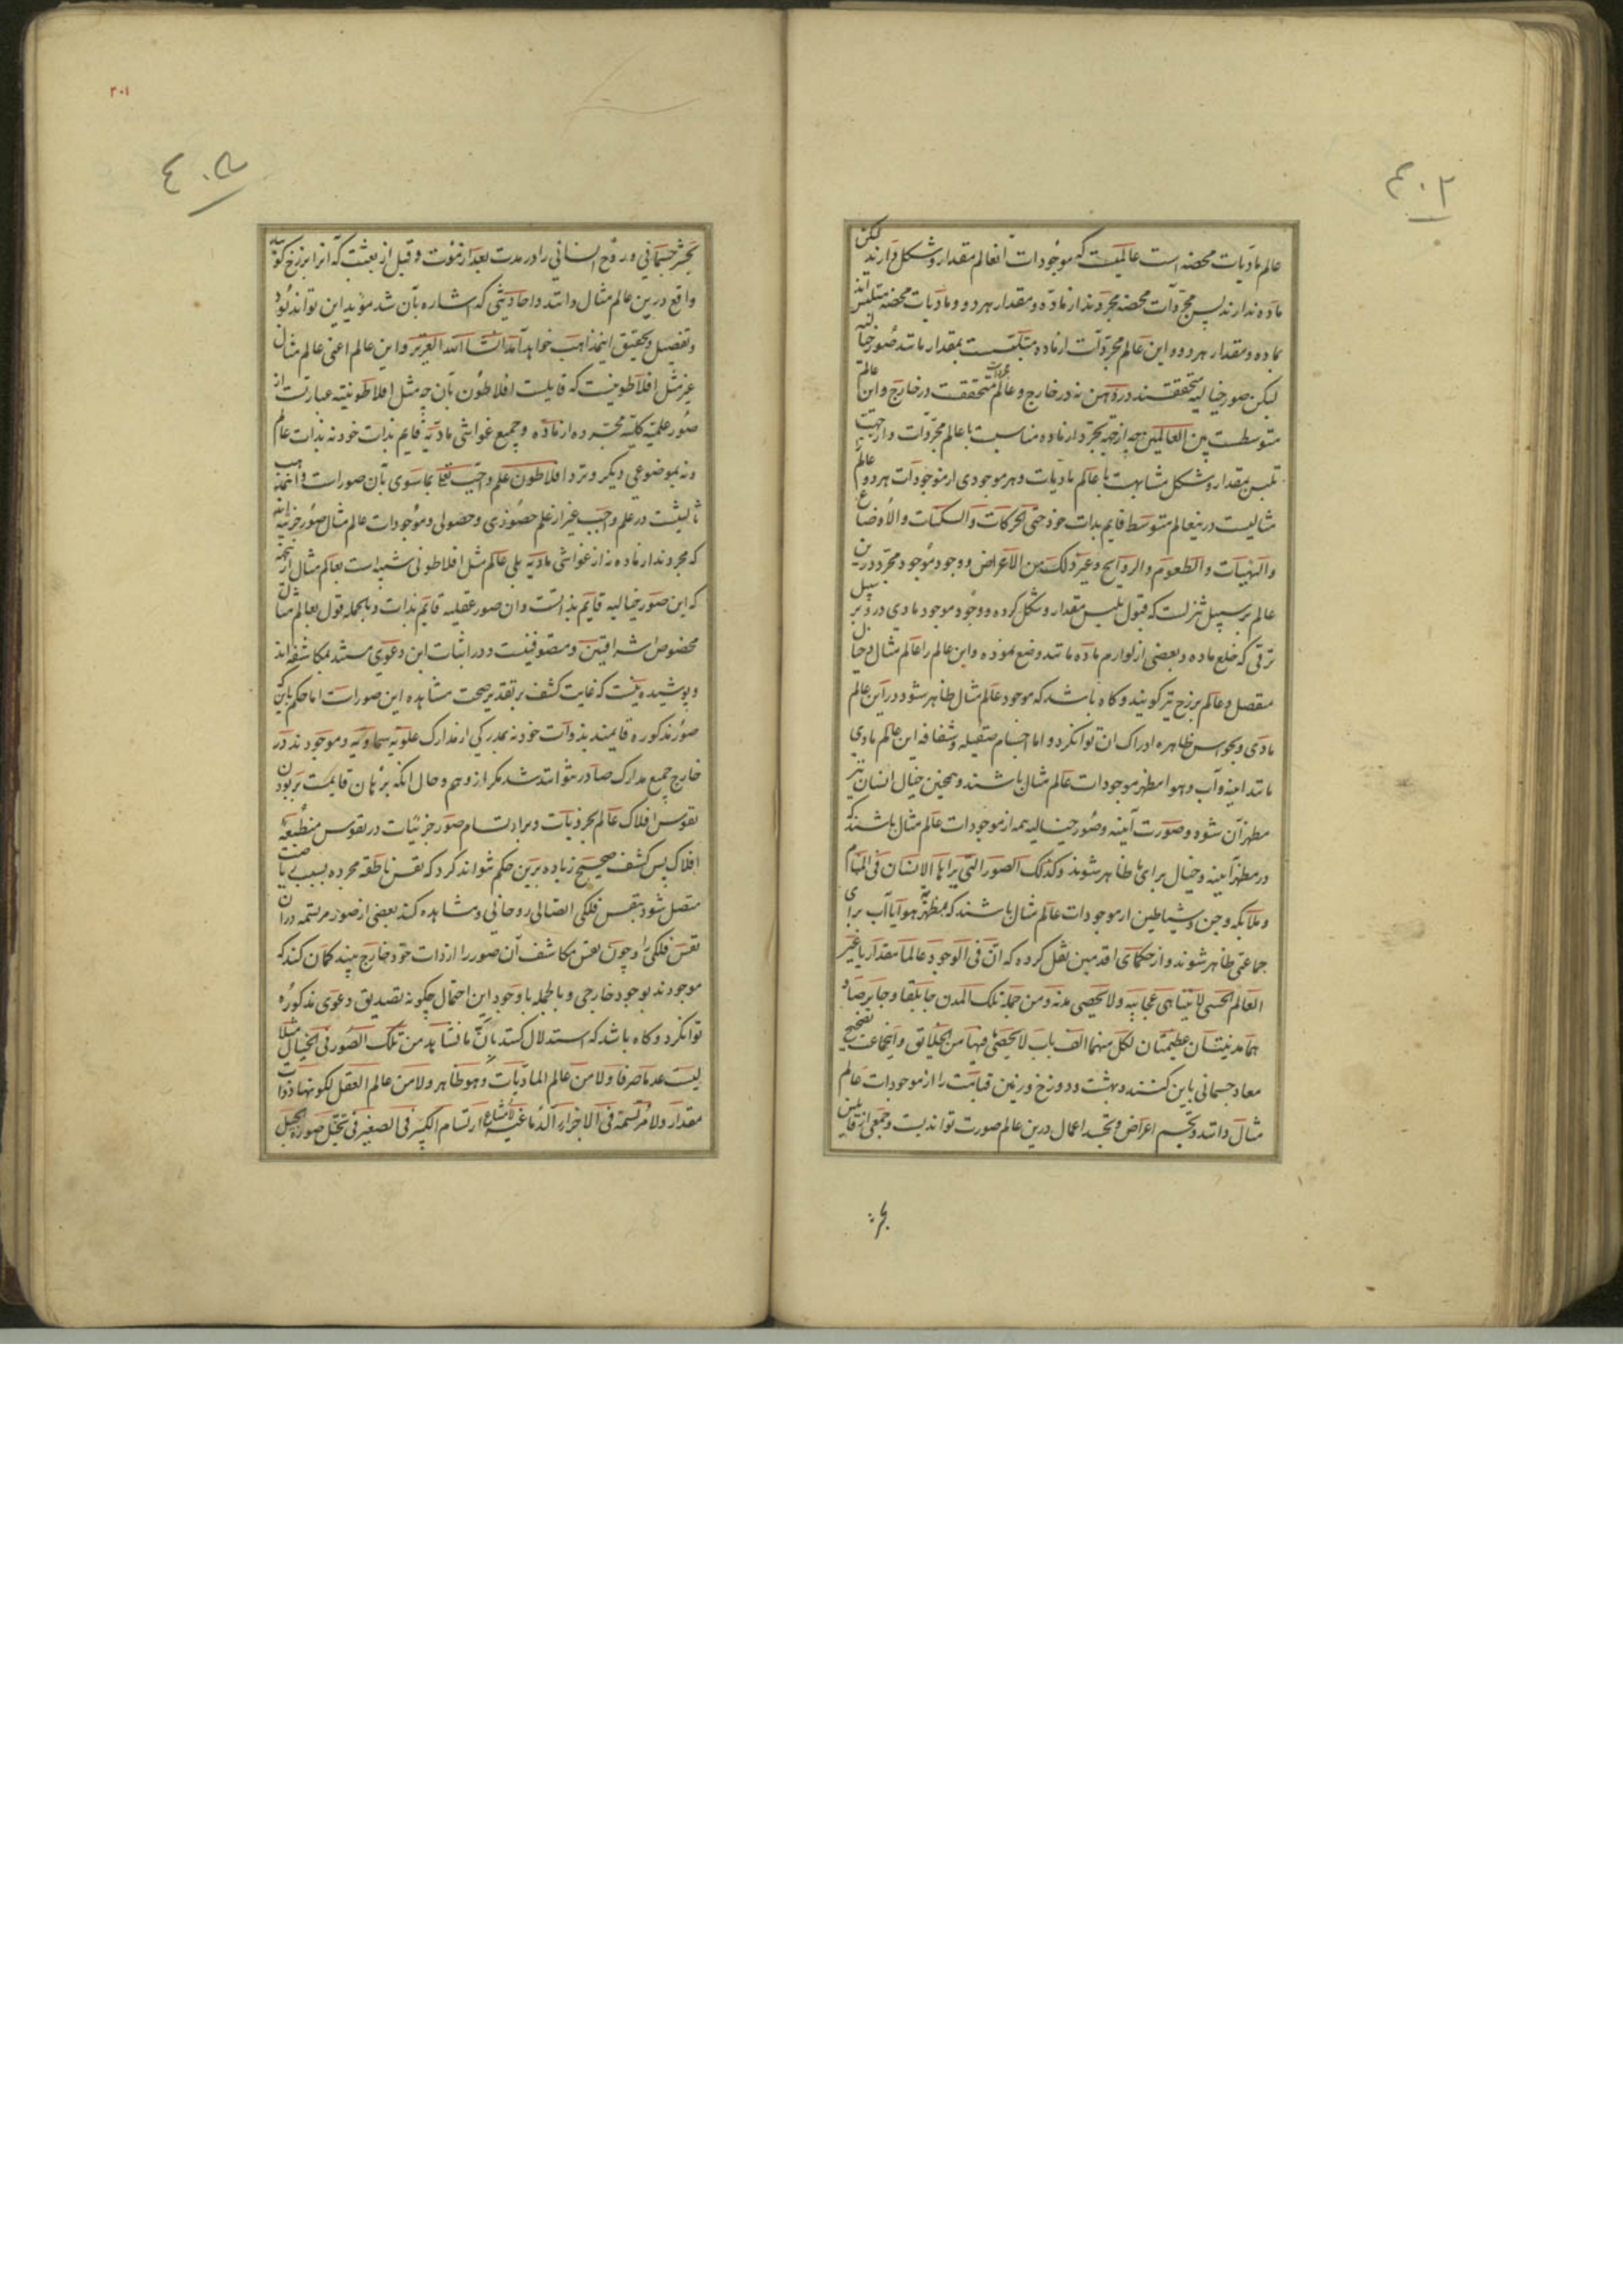 ۴۰۲
عالم مادیات محضه است عالمیست که موجودات انعالم مقدار و شکل دارند لکن
ماده ندارند پس مجردات محضه مجردند از ماده و مقدار هر دو و مادیات محضه متلبس اند
بماده و مقدار هر دو و این عالم مجردات از ماده متلبست بمقدار مانند صور خیالیه
لیکن صور خیالیه متحققند در ذهن نه در خارج و عالم متحققست در خارج و این عالم
متوسطست بین العالمین چه از جهه تجرد از ماده مناسبت با عالم مجردات و از جهت
تلبس بمقدار و شکل مشابهت با عالم مادیات و هر موجودی از موجودات هر دو عالم
مثالیست درینعالم متوسط قایم بذات خود حتی الحرکات و السکنات و الاوضاع
و الهیات و الطعوم و الروایح و غیر ذلک من الاعراض و وجود موجود مجرد درین
عالم بر سبیل تنزلست که قبول تلبس مقدار و شکل کرده و وجود موجود مادی درو بر سبیل
ترقی که خلع ماده و بعضی از لوازم ماده مانند وضع نموده و این عالم را عالم مثال و خیال
منفصل و عالم برزخ نیز گویند و کاه باشد که موجود عالم مثال ظاهر شود در این عالم
مادی و بحواس ظاهره ادراک ان توانکرد و اما اجسام صقیله و شفافه این عالم مادی
مانند اینه و آب و هوا مظهر موجودات عالم مثال باشند و همچنین خیال انسان نیز
مظهر آن شود و صورت آینه و صور خیالیه همه از موجودات عالم مثال باشند که
در مظهر آینه و خیال برای ما ظاهر شوند و کذلک الصور التی یراها الانسان فی المنام
و ملایکه و جن و شیاطین از موجودات عالم مثال باشند که بمظهریه هوا یا آب برای
جماعتی ظاهر شوند و از حکمای اقدمین نقل کرده که ان فی الوجود عالما مقداریا غیر
العالم الحسی لا یتناهی عجایبه و لا یحصی مدنه و من جمله تلک المدن جابلقا و جابرصا و
هما مدینتان عظیمتان لکل منهما الف باب لا یحصی ما فیها من الخلایق و اینجماعت تصحیح
معاد جسمانی باین کنند و بهشت و دوزخ و زمین قیامت را از موجودات عالم
مثال دانند و تجسم اعراض و تجسد اعمال درین عالم صورت تواند بست و جمعی از قایلین
بحشر
۲۰۱
بحشر جسمانی و روح انسانی را در مدت بعد از موت و قبل از بعثت که انرا برزخ کویند
واقع درین عالم مثال دانند و احادیثی که اشاره بآن شد مؤید این تواند بود
و تفصیل و تحقیق اینمذاهب خواهد آمد انشاء الله العزیز و این عالم اعنی عالم مثال
غیر مثل افلاطونیست که قایلست افلاطون بآن چه مثل افلاطونیه عبارتست از
صور علمیه کلیه مجرده از ماده و جمیع غواشی مادیه قایم بذات خود نه بذات عالم
و نه بموضوعی دیکر و نزد افلاطون علم واجب تعالی بما سوی بآن صور است و اینمذهب
ثالثیست در علم واجب غیر از علم حضوری و حصولی و موجودات عالم مثال صور جزئیه اند
که مجردند از ماده نه از غواشی مادیه بلی عالم مثل افلاطونی شبیه است بعالم مثال از اینجهة
که این صور خیالیه قایم بذاتست و ان صور عقلیه قایم بذات و بالجمله قول بعالم مثال
مخصوص اشراقیین و متصوفیست و در اثبات این دعوی مستند بمکاشفه اند
و پوشیده نیست که غایت کشف بر تقدیر صحت مشاهده این صور است اما حکم باینکه
صور مذکوره قایمند بذوات خود نه بمدرکی از مدارک علویه سماویه و موجودند در
خارج جمیع مدارک صادر نتواند شد مکر از وهم و حال انکه برهان قایمست بر بودن
نفوس افلاک عالم بجزئیات و بر ارتسام صور جزئیات در نفوس منطبعه
افلاک پس کشف صحیح زیاده برین حکم نتواند کرد که نفس ناطقه مجرده بسبب ریاضت
متصل شود بنفس فلکی اتصالی روحانی و مشاهده کند بعضی از صور مرتسمه در ان
نفس فلکی را و چون نفس مکاشف آن صور را از ذات خود خارج بیند کمان کند که
موجودند بوجود خارجی و بالجمله با وجود این احتمال چکونه تصدیق دعوی مذکوره
توانکرد و کاه باشد که استدلال کنند بان ما نشاهد من تلک الصور فی الخیال مثلا
لیست عدما صرفا و لا من عالم المادیات و هو ظاهر و لا من عالم العقل لکونها ذوات
مقدار و لا مرتسمة فی الاجزاء الدماغیه لامتناع ارتسام الکبیر فی الصغیر فی تخیل صورة الجبل